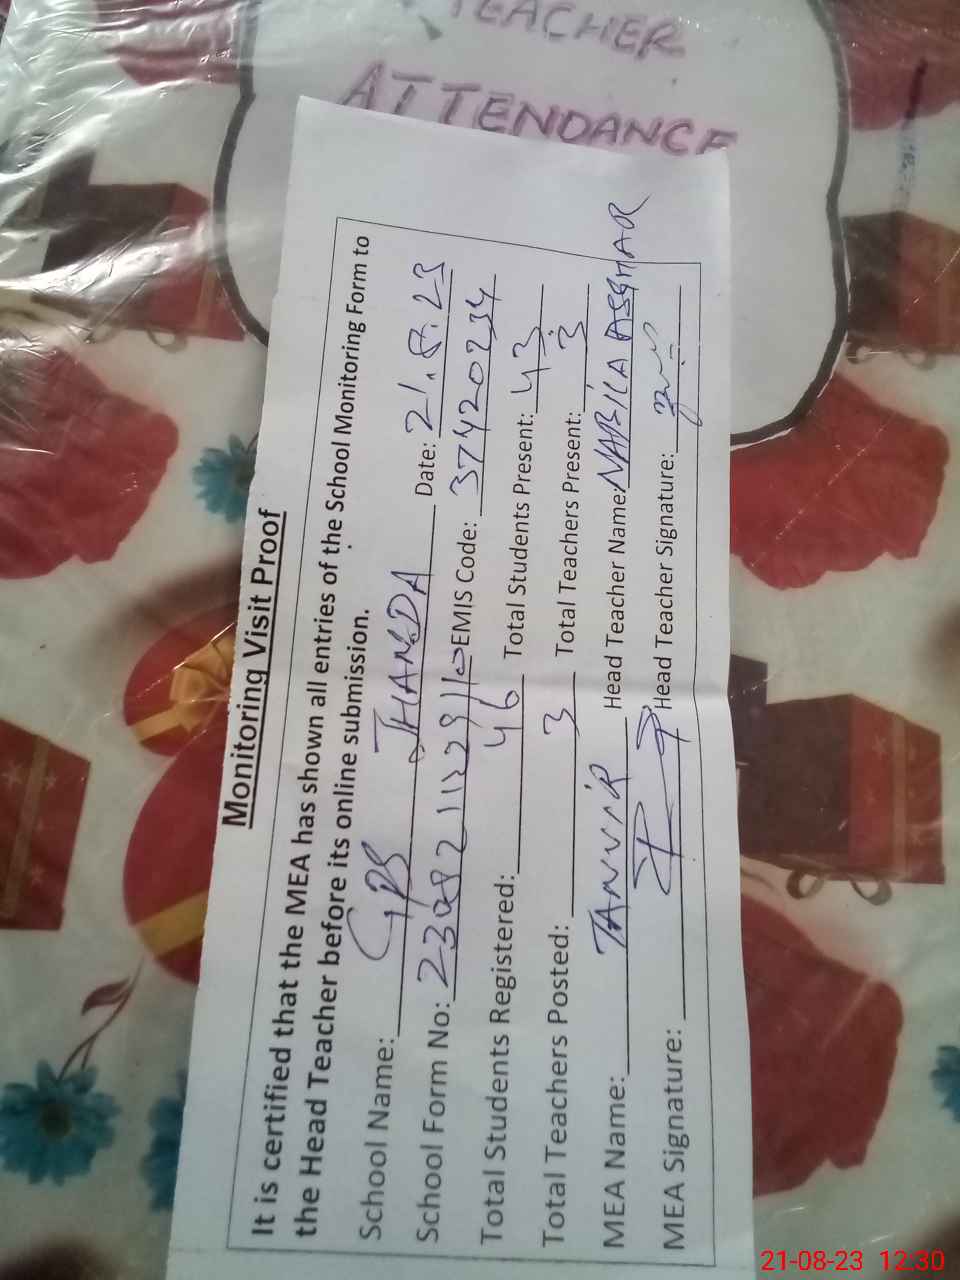 TEACHER
ATTENDANCE
Monitoring Visit Proof
It is certified that the MEA has shown all entries of the School Monitoring Form to
the Head Teacher before its online submission.
School Name: GPS JHANDA Date: 21.8.23
School Form No: EMIS Code: 37420234
Total Students Registered: 46 Total Students Present: 43
Total Teachers Posted: 3 Total Teachers Present: 3
MEA Name: TANVIR Head Teacher Name: NABILA ASGHAR
MEA Signature: Head Teacher Signature:
21-08-23 12:30